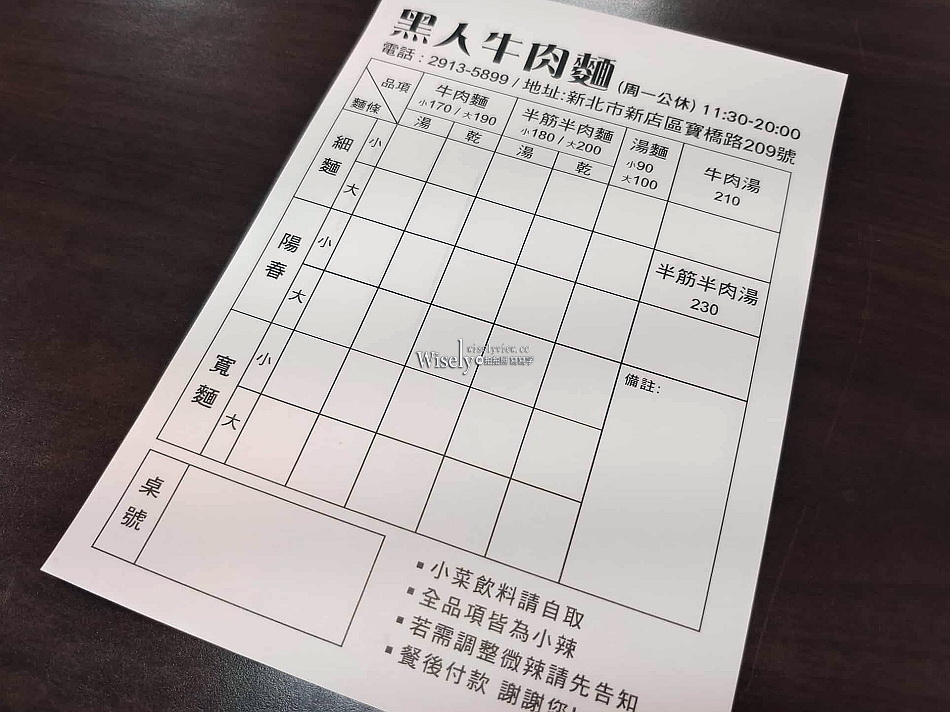 黑人牛肉麵 (周一公休) 11:30-20:00
電話：2913-5899 / 地址:新北市新店區寶橋路209號
品項
麵條
牛肉麵
小170 / 大190
湯 乾
半筋半肉麵
小180 / 大200
湯 乾
湯麵
小90
大100
牛肉湯
210
半筋半肉湯
230
備註:
細麵
小
大
陽春
小
大
寬麵
小
大
桌號
▪小菜飲料請自取
▪全品項皆為小辣
▪若需調整微辣請先告知
▪餐後付款 謝謝您!
wiselyview.cc
Wisely